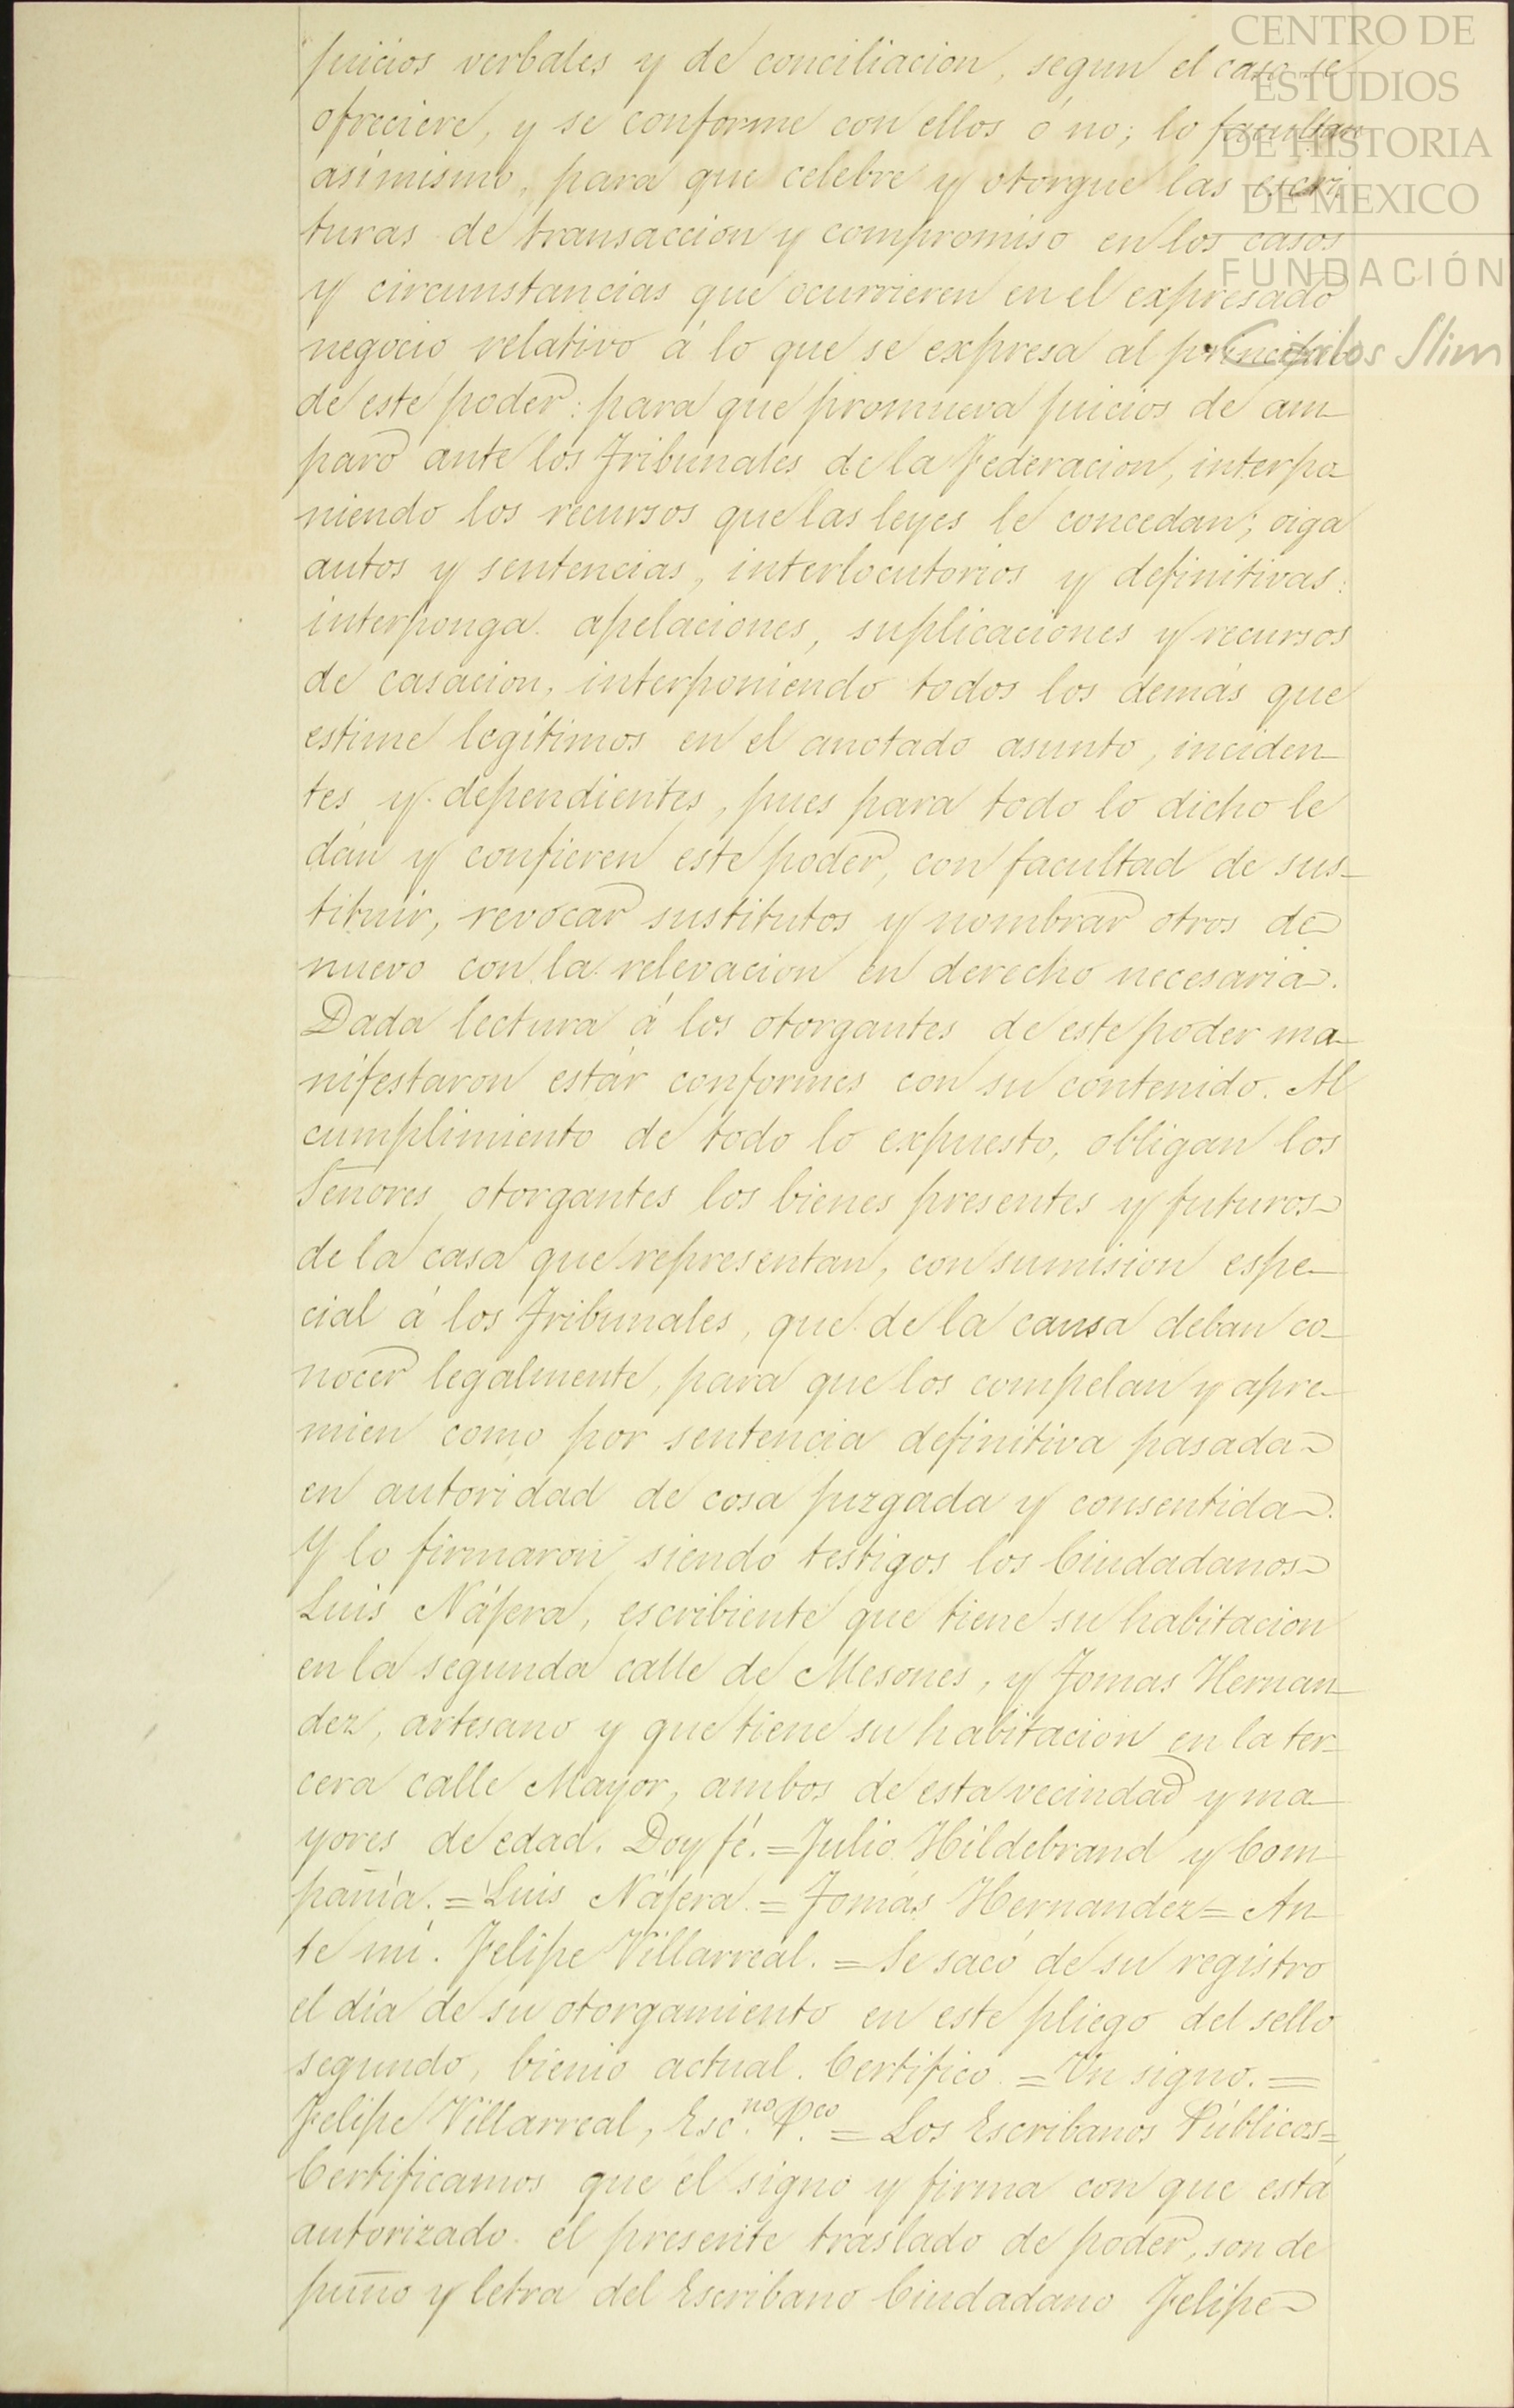 CENTRO DE
ESTUDIOS
DE HISTORIA
DE MEXICO
FUNDACIÓN
Carlos Slim
juicios verbales y de conciliacion, segun el caso se
ofreciere, y se conforme con ellos ó no; lo facultan
asimismo, para que celebre y otorgue las escri
turas de transaccion y compromiso en los casos
y circunstancias que ocurrieren en el expresado
negocio relativo á lo que se expresa al principio
de este poder: para que promueva juicios de am
paro ante los Tribunales de la Federacion, interpo
niendo los recursos que las leyes le concedan; oiga
autos y sentencias, interlocutorios y definitivas:
interponga apelaciones, suplicaciones y recursos
de casacion, interponiendo todos los demás que
estime legítimos en el anotado asunto, inciden
tes y dependientes, pues para todo lo dicho le
dán y confieren este poder, con facultad de sus-
tituir, revocar sustitutos y nombrar otros de
nuevo con la relevacion en derecho necesaria.
Dada lectura á los otorgantes de este poder ma-
nifestaron estár conformes con su contenido. Al
cumplimiento de todo lo expuesto, obligan los
Señores otorgantes los bienes presentes y futuros
de la casa que representan, con sumision espe-
cial á los Tribunales, que de la causa deban co-
nocer legalmente, para que los compelan y apre-
mien como por sentencia definitiva pasada
en autoridad de cosa juzgada y consentida.
Y lo firmaron siendo testigos los Ciudadanos
Luis Nájera, escribiente que tiene su habitacion
en la segunda calle de Mesones, y Tomas Hernan-
dez, artesano y que tiene su habitacion en la ter-
cera calle Mayor, ambos de esta vecindad y ma-
yores de edad. Doy fé.=Julio Hildebrand y Com
pañía.=Luis Nájera.=Tomás Hernandez=An
te mi. Felipe Villarreal.=Se sacó de su registro
el dia de su otorgamiento en este pliego del sello
segundo, bienio actual. Certifico.=Un signo.=
Felipe Villarreal, Esc.no P.co=Los Escribanos Públicos=
Certificamos que el signo y firma con que está
autorizado el presente traslado de poder, son de
puño y letra del Escribano Ciudadano Felipe